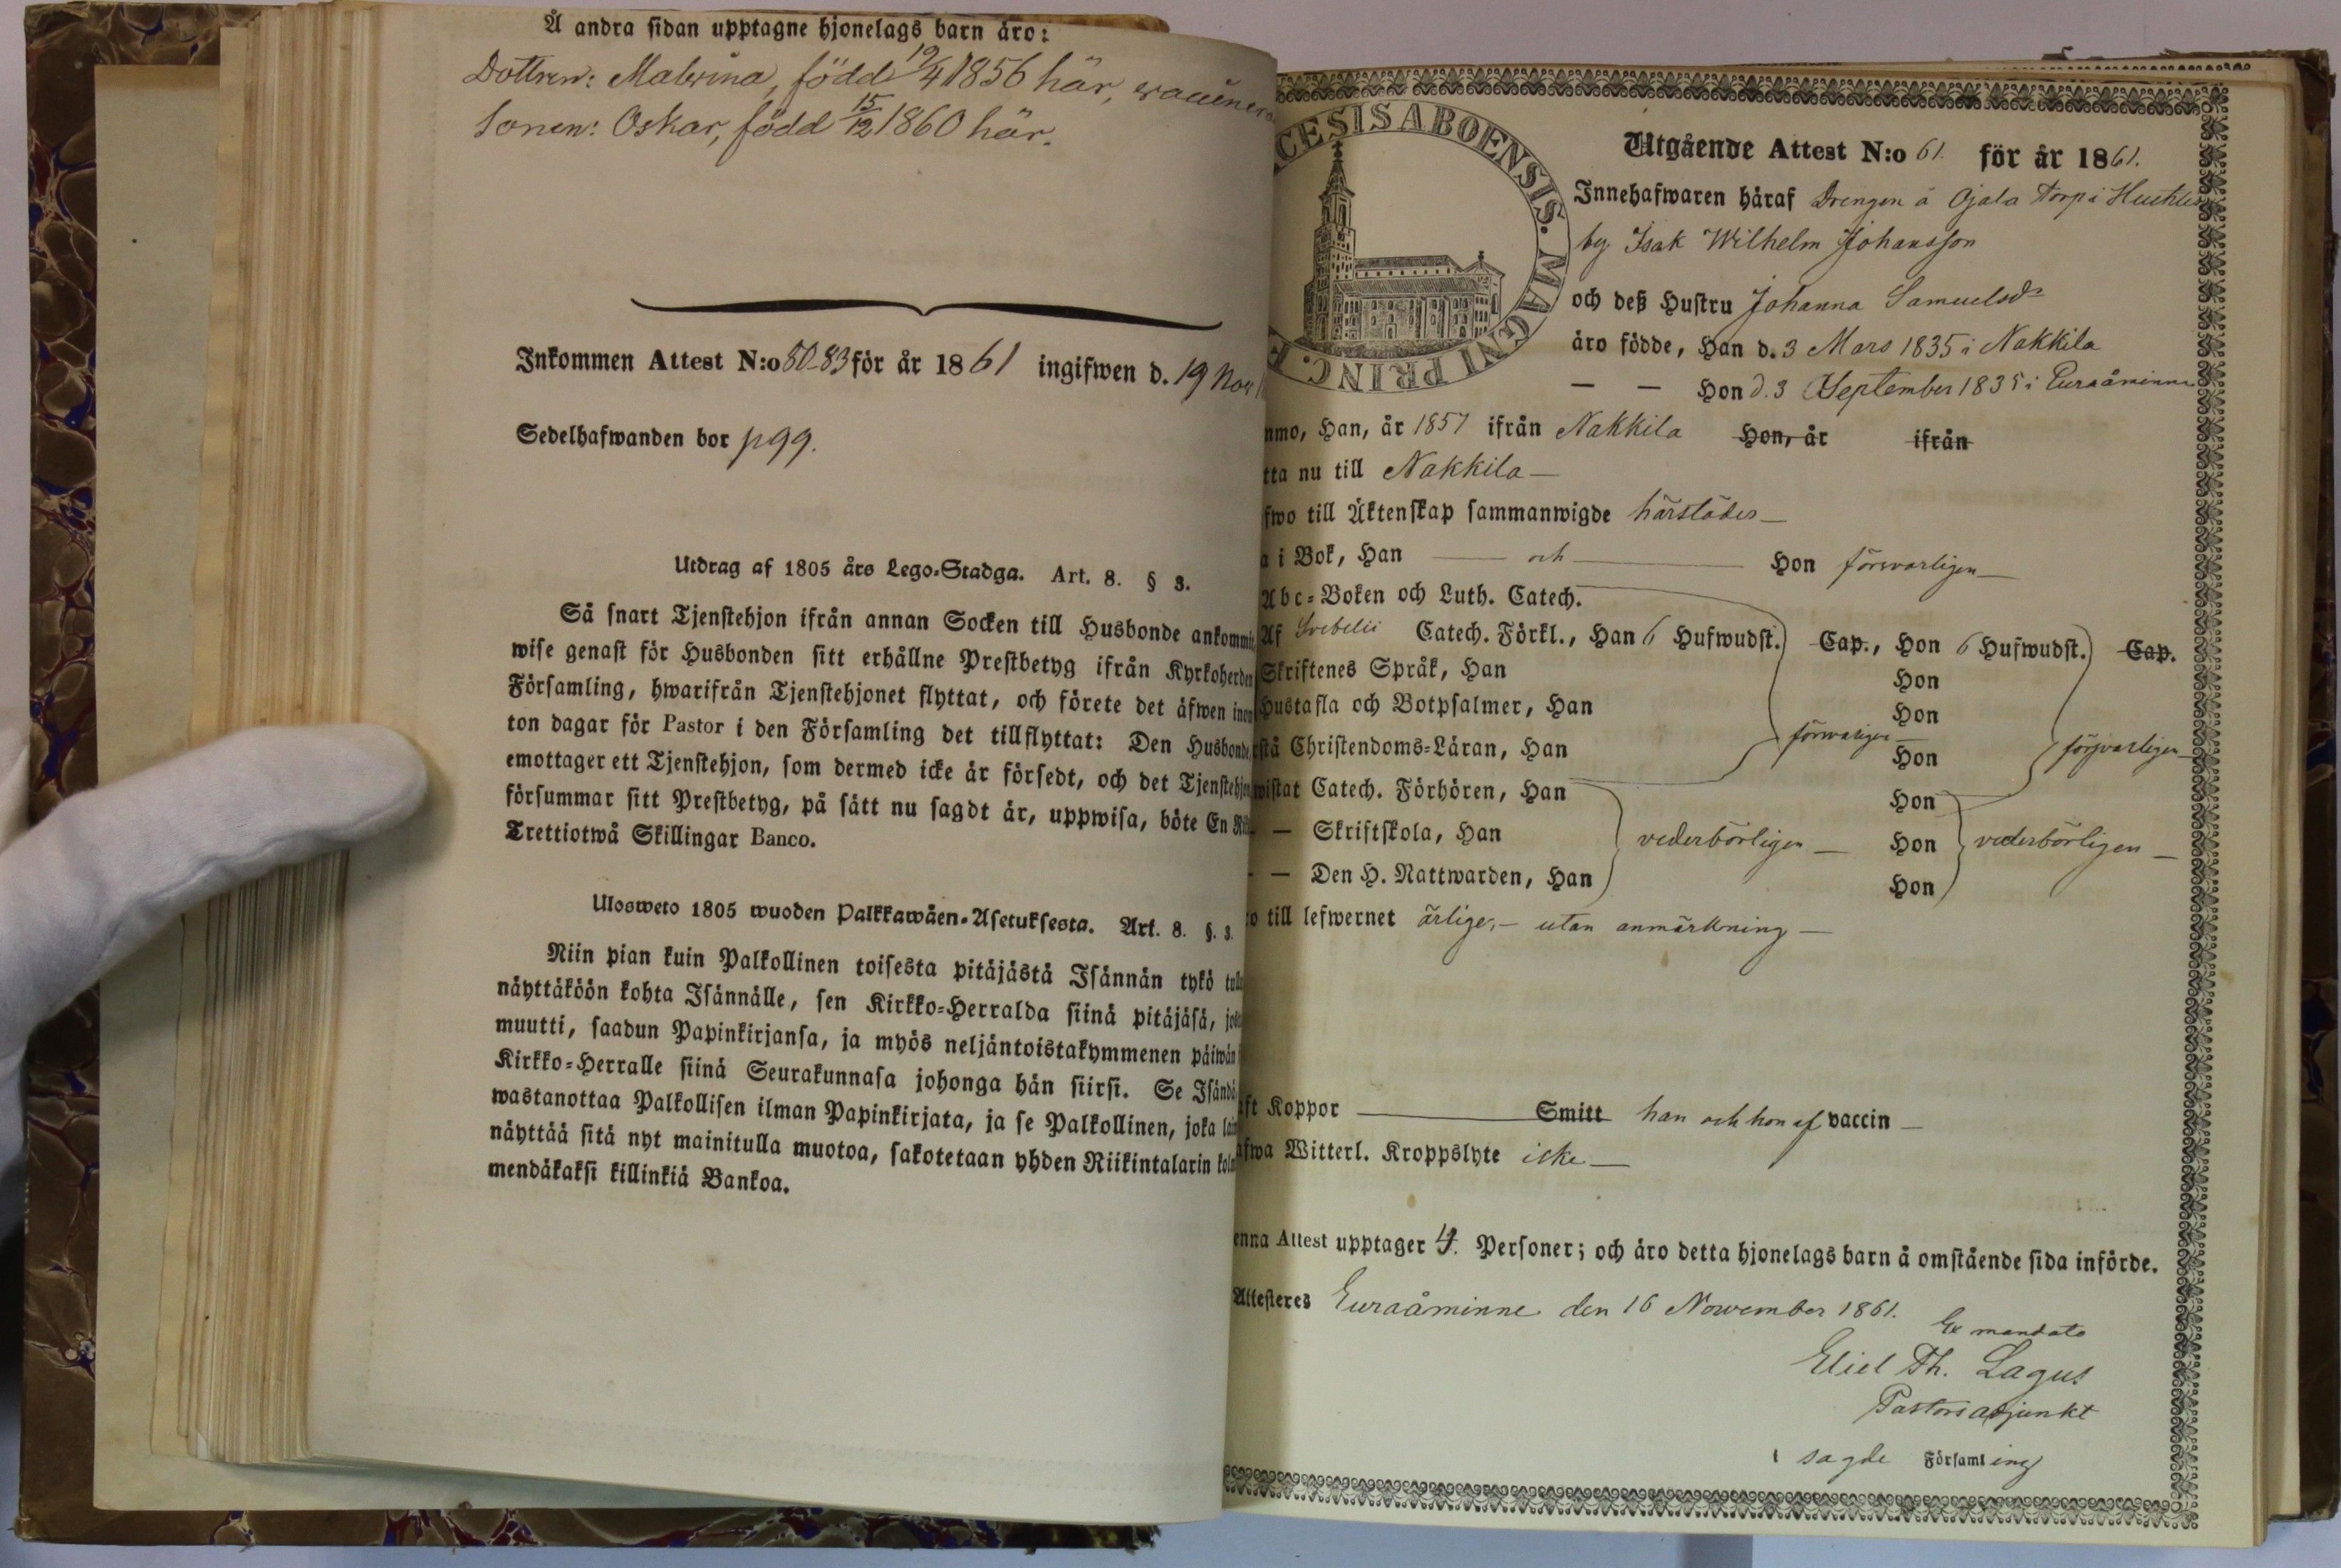 Å andra sidan upptagne hjonelags barn äro:
Dottren: Malvina, född 19/4 1856 här,
Sonen: Oskar, född 15/12 1860 här.
Inkommen Attest N:o 80-83 för år 1861 ingifwen d. 19 Nov
Sedelhafwanden bor p 99.
Utdrag af 1805 års Lego-Stadga. Art. 8. § 3.
Så snart Tjenstehjon ifrån annan Socken till Husbonde ankommit,
wise genast för Husbonden sitt erhållne Prestbetyg ifrån Kyrkoherden
Församling, hwarifrån Tjenstehjonet flyttat, och förete det äfwen inom
ton dagar för Pastor i den Församling det tillflyttat: Den Husbonde,
emottager ett Tjenstehjon, som dermed icke är försedt, och det Tjenstehjon
försummar sitt Prestbetyg, på sätt nu sagdt är, uppwisa, böte En
Trettiotwå Skillingar Banco.
Ulosweto 1805 wuoden Palkkawäen-Asetuksesta. Art. 8. §. 3.
Niin pian kuin Palkollinen toisesta pitäjästä Isännän tykö
näyttäköön kohta Isännälle, sen Kirkko-Herralda siinä pitäjäsä,
muutti, saadun Papinkirjansa, ja myös neljäntoistakymmenen päiwän
Kirkko-Herralle siinä Seurakunnasa johonga hän siirsi. Se Isändä
wastanottaa Palkollisen ilman Papinkirjata, ja se Palkollinen, joka
näyttää sitä nyt mainitulla muotoa, sakotetaan yhden Riikintalarin
mendäkaksi killinkiä Bankoa.
CESIS ABOENSIS. MAGNI PRINC. F
Utgående Attest N:o 61. för år 1861.
Innehafwaren häraf Drengen å Ojala torp i
by Isak Wilhelm Johansson
och deß Hustru Johanna Samuelsdr
äro födde, Han d. 3 Mars 1835 i Nakkila
— — Hon d. 3 September 1835 i Euraåminne
mo, Han, år 1857 ifrån Nakkila Hon, år ifrån
tta nu till Nakkila —
fwo till Äktenskap sammanwigde härstädes —
a i Bok, Han — och — Hon försvarligen —
Abc-Boken och Luth. Catech.
Af Svebelii Catech. Förkl., Han 6 Hufwudst. Cap., Hon 6 Hufwudst. Cap.
Skriftenes Språk, Han Hon
Hustafla och Botpsalmer, Han Hon
stå Christendoms-Läran, Han försvarligen — Hon försvarligen —
wistat Catech. Förhören, Han Hon
— Skriftskola, Han vederbörligen — Hon vederbörligen —
— — Den H. Nattwarden, Han Hon
o till lefwernet ärlige, — utan anmärkning —
ft Koppor — Smitt han och hon af vaccin —
fwa Witterl. Kroppslyte icke —
enna Attest upptager 4. Personer; och äro detta hjonelags barn å omstående sida införde.
Attesteres Euraåminne den 16 November 1861.
Ex mandato
Eliel Th. Lagus
Pastorsadjunkt
i sagde Församling